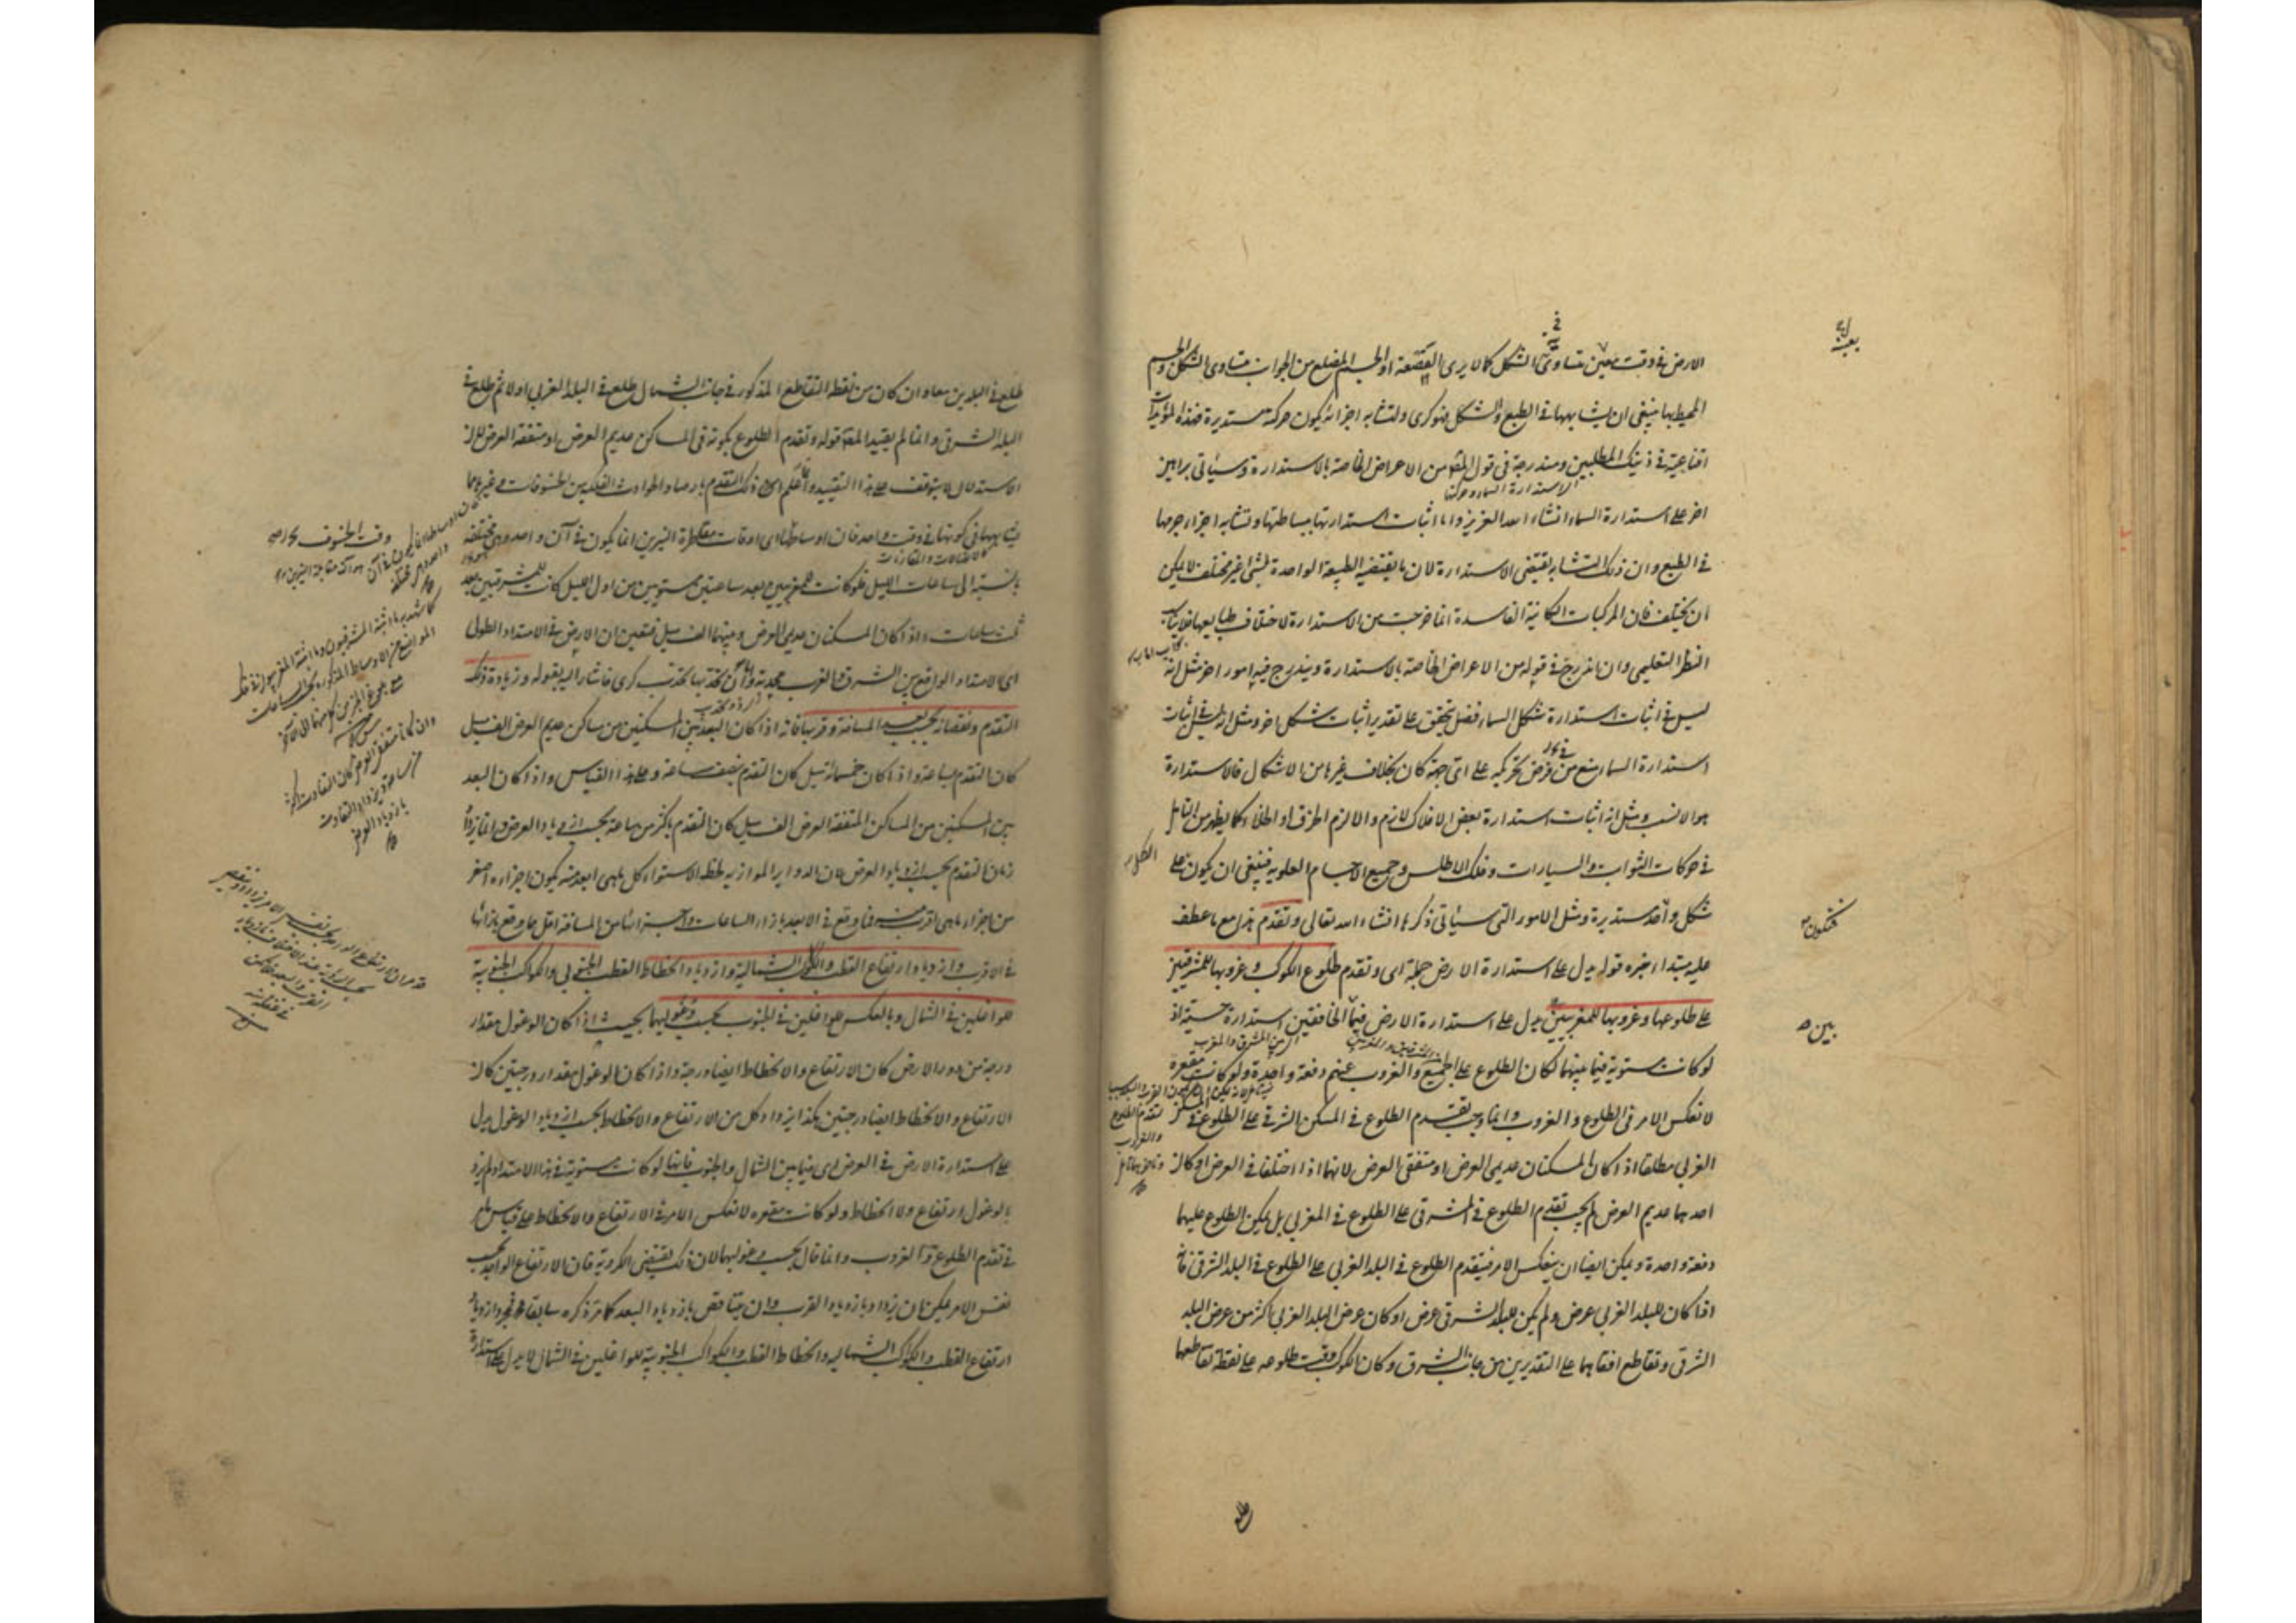 الارض فی وقت معین متساوی الشکل کما لا یری القصعة او الجسم المضلع من الجوانب متساوی الشکل والجسم
المحیط بها ینبغی ان یشابهها فی الطبع والشکل فهو کری ولتشابه اجزائه یکون حرکته مستدیرة فهذه المؤیدات
اقناعیة فی ذینک المطلبین ومندرجة فی قول المصّ من الاعراض الخاصة بالاستدارة وسیأتی براهین
اخر علی استدارة السماء انشاء الله العزیز واما اثبات استدارتها ببساطتها وتشابه اجزاء جرمها
فی الطبع وان ذلک التشابه یقتضی الاستدارة لان ما یقتضیه الطبیعة الواحدة لشئ غیر مختلف لا یمکن
ان یختلف فان المرکبات الکائنة الفاسدة انما خرجت من الاستدارة لاختلاف طبایعها فلا یناسب
النظر التعلیمی وان اندرج فی قوله من الاعراض الخاصة بالاستدارة ویندرج فیه امور اخر مثل انه
لیس فی اثبات استدارة شکل السماء فضل تحقق علی تقدیر اثبات شکل اخر ومثل انه لیس فی اثبات
استدارة السماء منع من فرض تحرکه علی ای جهة کان بخلاف غیرها من الاشکال فالاستدارة
هو الانسب ومثل انه اثبات استدارة بعض الافلاک لازم والا لزم الخرق او الخلاء کما یظهر من التأمل
فی حرکات الثوابت والسیارات وفلک الاطلس وجمیع الاجسام العلویة فینبغی ان یکون علی
شکل واحد مستدیرة ومثل الامور التی سیأتی ذکرها انشاء الله تعالی وتقدم هذا مع ما عطف
علیه مبتدا خبره قوله یدل علی استدارة الارض جملة ای وتقدم طلوع الکوکب وغروبها للمشرقیین
علی طلوعها وغروبها للمغربیین یدل علی استدارة الارض فیما بین الخافقین استدارة حسیة اذ
لو کانت مستویة فیما بینهما لکان الطلوع علی الجمیع والغروب عنهم دفعة واحدة ولو کانت مقعرة
لانعکس الامر فی الطلوع والغروب وانما وجب تقدم الطلوع فی المسکن الشرقی علی الطلوع فی المسکن
الغربی مطلقا اذا کان المسکنان عدیمی العرض او متفقی العرض لانهما اذا اختلفا فی العرض او کان
احدهما عدیم العرض لم یجب تقدم الطلوع فی الشرقی علی الطلوع فی المغربی بل یمکن الطلوع علیهما
دفعة واحدة ویمکن ایضا ان ینعکس الامر فیتقدم الطلوع فی البلد الغربی علی الطلوع فی البلد الشرقی فانه
اذا کان للبلد الغربی عرض ولم یکن للبلد الشرقی عرض او کان عرض البلد الغربی اکثر من عرض البلد
الشرقی وتقاطع افقاهما علی التقدیرین من جانب الشرق وکان الکوکب وقت طلوعه علی نقطة تقاطعهما
فتکون
طلع
طلع فی البلدین معا وان کان من نقطة التقاطع المذکور فی جانب الشمال طلع فی البلد الغربی اولا ثم طلع فی
البلد الشرقی وانما لم یقید المصّ قوله وتقدم الطلوع بکونه فی المساکن عدیم العرض او متفقة العرض لان
الاستدلال لا یتوقف علی هذا التقیید واعلم ان ذلک التقدم بارصاد الحوادث الفلکیة من الخسوفات وغیرها مما
یشابهها فی کونها فی وقت واحد فان اوساطها ای اوقات مقاطرة النیرین انما یکون فی آن واحد وهی مختلفة
بالنسبة الی ساعات اللیل فلو کانت للمغربیین بعد ساعتین مستویتین من اول اللیل کانت للمشرقیین بعد
ثلث ساعات اذا کان المسکنان عدیمی العرض وبینهما الف میل فتعین ان الارض فی الامتداد الطولی
ای الامتداد الواقع بین الشرق والغرب محدبة وان تحدبها تحدب کری فاشار الیه بقوله وزیادة ذلک
التقدم ونقصانه بحسب بعد المسافة وقربها فانه اذا کان البعد بین المسکنین من مساکن عدیم العرض الف میل
کان التقدم بساعة واذا کان خمسمائة میل کان التقدم بنصف ساعة وعلی هذا القیاس واذا کان البعد
بین المسکنین من المساکن المتفقة العرض الف میل کان التقدم باکثر من ساعة بحسب ازدیاد العرض وانما یزداد
زمان التقدم بحسب ازدیاد العرض لان الدوایر الموازیة لخط الاستواء کل ما هی ابعد منه یکون اجزاءه اصغر
من اجزاء ما هی اقرب منه فما وقع فی الابعد بازاء الساعات واجزائها من المسافة اقل مما وقع بازائها
فی الاقرب وازدیاد ارتفاع القطب والکوکب الشمالیة وازدیاد انحطاط القطب الجنوبی والکوکب الجنوبیة
للواغلین فی الشمال وبالعکس للواغلین فی الجنوب بحسب وغولهما بحیث اذا کان الوغول مقدار
درجة من دور الارض کان الارتفاع والانحطاط ایضا درجة واذا کان الوغول مقدار درجتین کان
الارتفاع والانحطاط ایضا درجتین هکذا یزداد کل من الارتفاع والانحطاط بحسب ازدیاد الوغول یدل
علی استدارة الارض فی العرض ای فیما بین الشمال والجنوب فانها لو کانت مستویة فی هذا الامتداد لم یزد
بالوغول ارتفاع ولا انحطاط ولو کانت مقعرة لانعکس الامر فی الارتفاع والانحطاط علی قیاس ما مر
فی تقدم الطلوع والغروب وانما قال بحسب وغولهما لان ذلک یقتضی الکرویة فان الارتفاع الواحد بحسب
نفس الامر یمکن ان یزداد بازدیاد القرب وان یتناقص بازدیاد البعد کما مر ذکره سابقا فمجرد ازدیاد
ارتفاع القطب والکوکب الشمالیة وانحطاط القطب والکواکب الجنوبیة للواغلین فی الشمال لا یدل علی استدارة